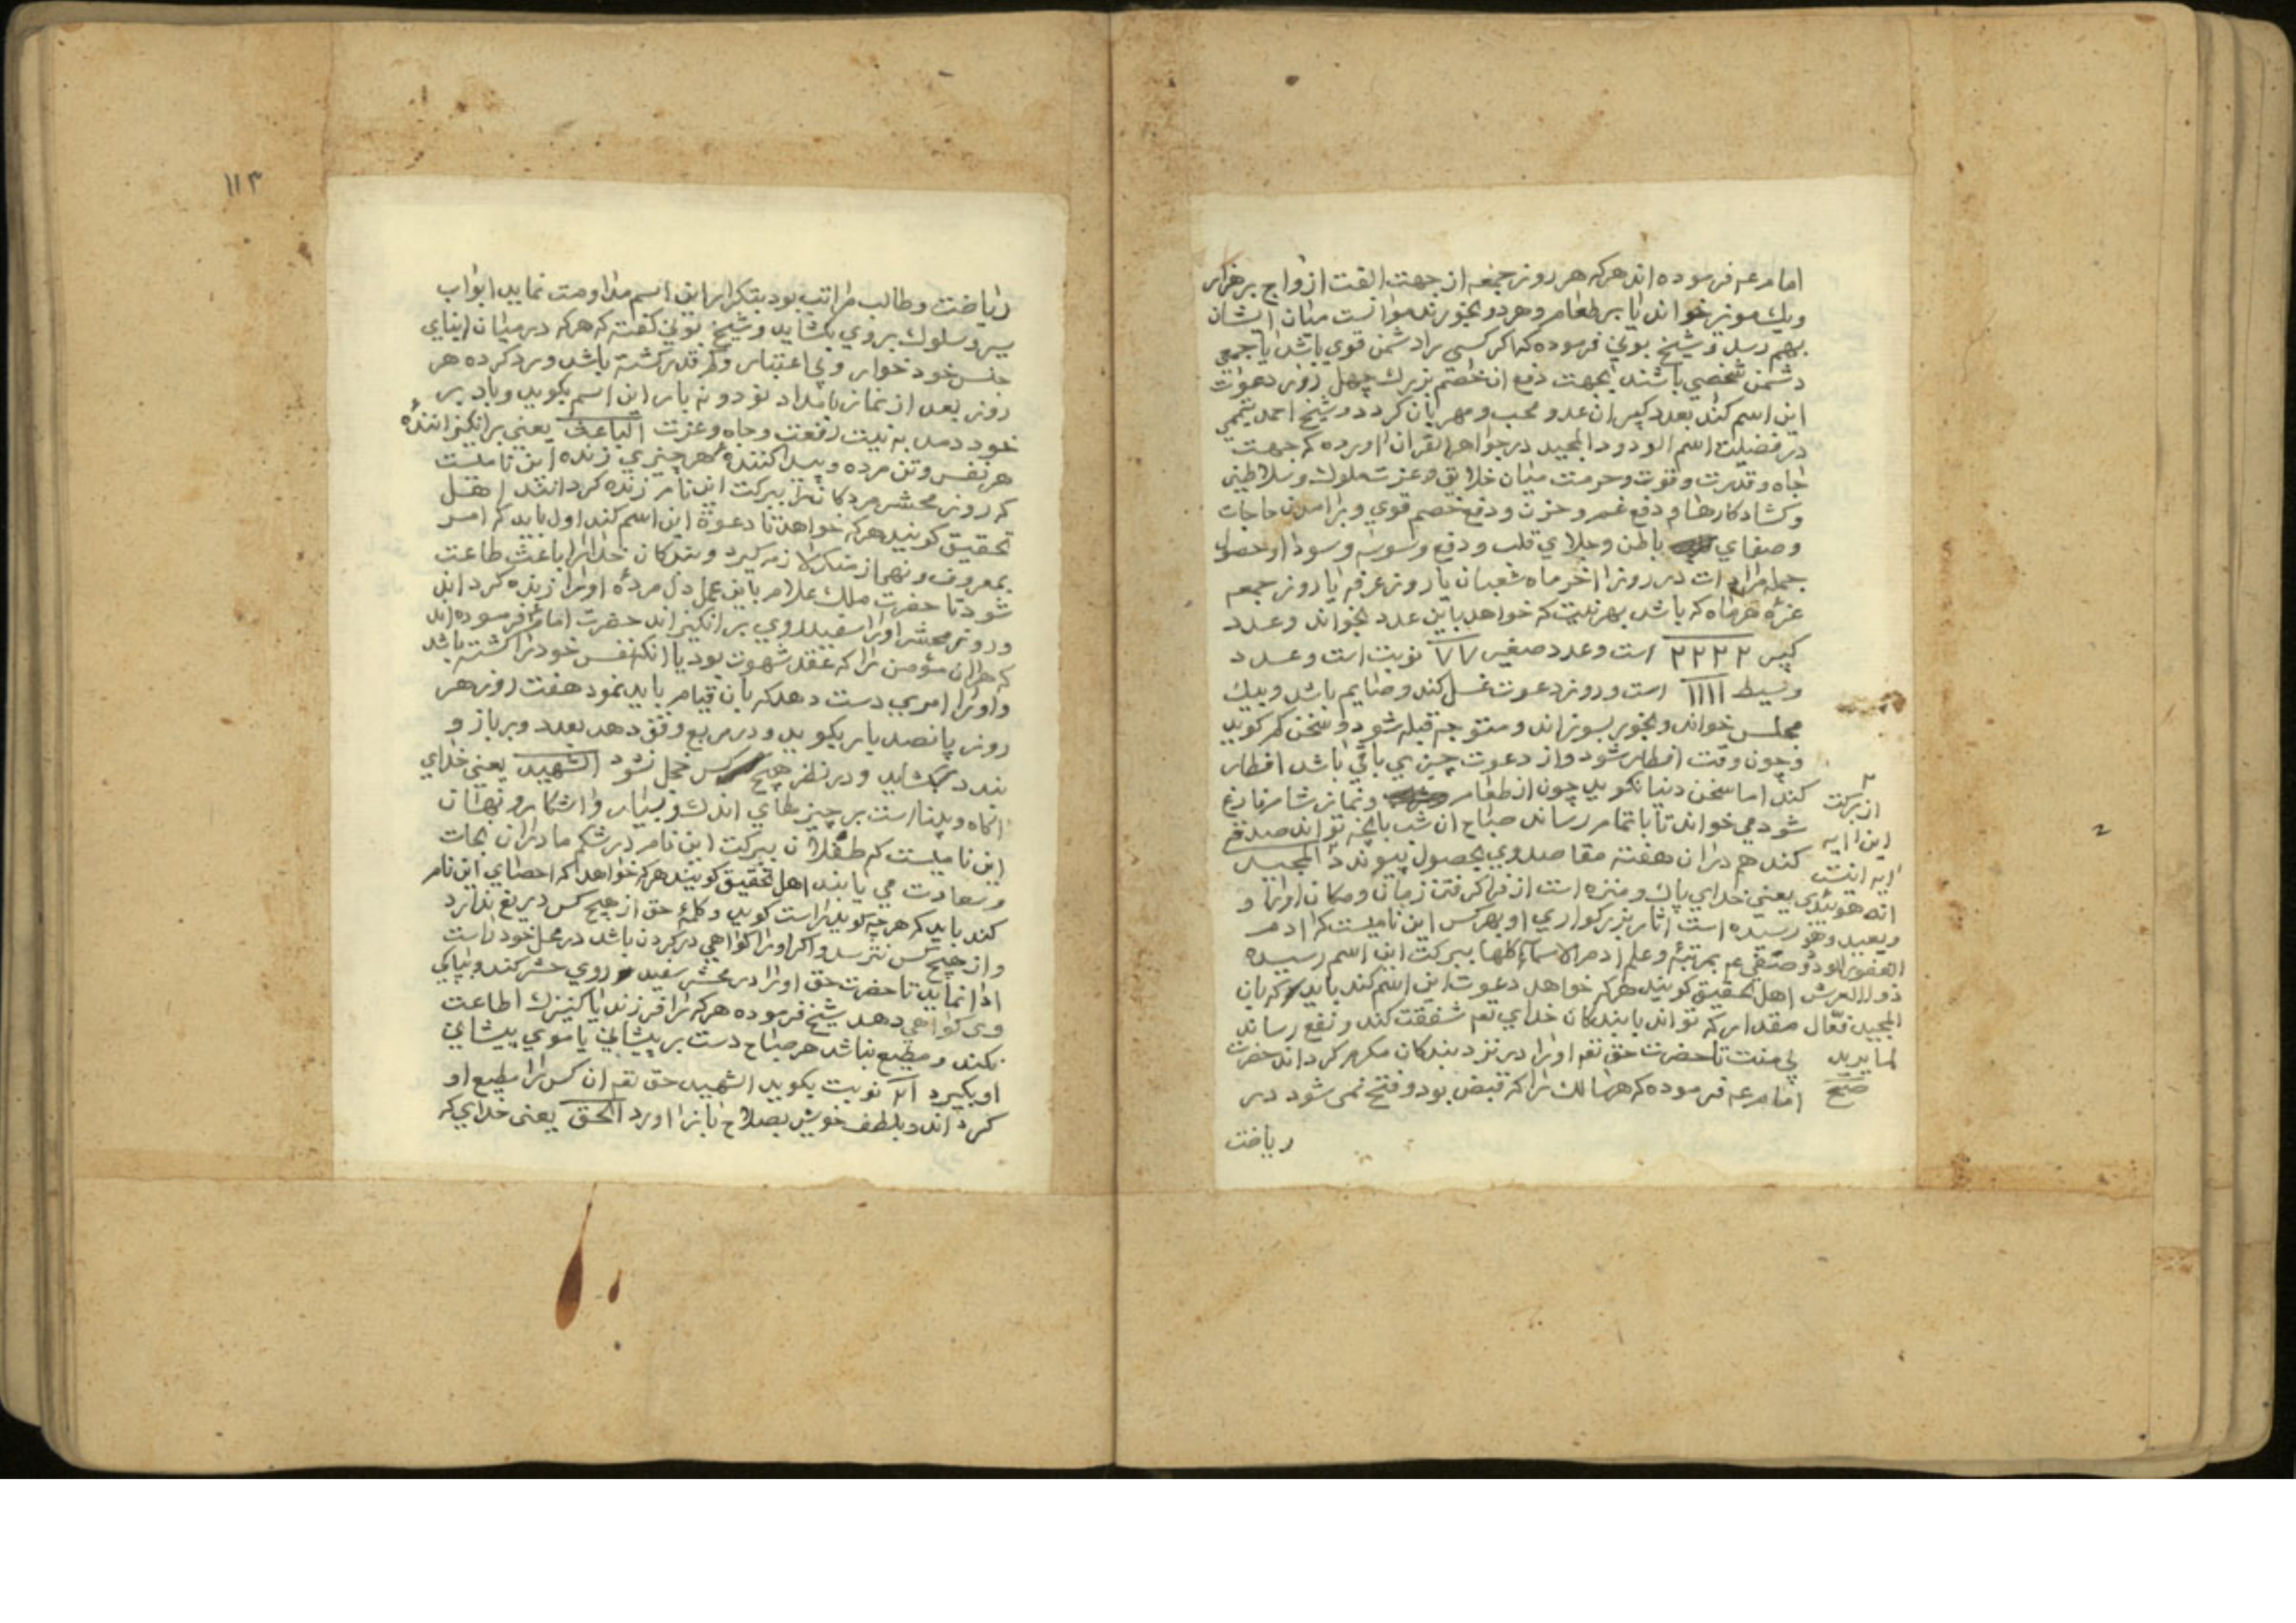 امام عم فرموده اند هر که هر روز جمعه از جهت الفت ازواج بر هزار
ویک مویز خواند یا بر طعام و هر دو بخورند موانست میان ایشان
بهم رسد و شیخ بونی فرموده که اکر کسی را دشمن قوی باشد یا جمعی
دشمن شخصی باشند بجهت دفع ان خاصم بزرک چهل روز دعوت
این اسم کند بعدد کبیر ان عدو محب و مهربان کردد و شیخ احمد تمیمی
در فضیلت اسم الودود المجید در جواهر القران اورده که جهت
جاه و قدرت و قوت و حرمت میان خلایق و عزت ملوک و سلاطین
وکشاد کارها و دفع غم و حزن و دفع خصم قوی و برامدن حاجات
وصفای باطن و جلای قلب و دفع وسوسه و سودا و حصول
جمله مرادات در روز اخر ماه شعبان یا روز عرفه یا روز جمعه
غره هر ماه که باشد بهر نیت که خواهد باین عدد بخواند وعدد
کبیر ۲۲۲۲ است وعدد صغیر ۷۷ نوبت است وعدد
وسیط ۱۱۱۱ است و روز دعوت غسل کند و صایم باشد و بیک
مجلس خواند و بخور بسوزاند و متوجه قبله شود و سخن کم کوید
وچون وقت افطار شود و از دعوت چیزی باقی باشد افطار
کند اما سخن دنیا نکوید چون از طعام و نماز شام فارغ
شود می خواند تا باتمام رساند صباح ان شب بانچه تواند صدقه
کند هم دران هفته مقاصد وی بحصول پیوندد المجید
یعنی خدای پاک و منزه است از فرا کرفتن زمان و مکان اورا و
رسیده است اثار بزرکواری او بهر کس این نامیست که ادم
صفی عم بمرتبهٔ وعلم ادم الاسماء کلها ببرکت این اسم رسیده
اهل تحقیق کویند هر که خواهد دعوت این اسم کند باید که بان
مقدار که تواند با بندکان خدای تعم شفقت کند و نفع رساند
بی منت تا حضرت حق تعم اورا در نزد بندکان مکرم کرداند حضرت
امام عم فرموده که هر سالک را که قبض بود و فتح نمی شود در
ریاضت
از برکت
این ایه
ایه اینست
انه هو یبدی
ویعید وهو
الغفور الودود
ذو العرش
المجید فعال
لما یرید
صح
۱۱۳
ریاضت و طالب مراتب بود بتکرار این اسم مداومت نماید ابواب
سیر و سلوک بر وی بکشاید و شیخ بونی کفته که هر که در میان ابنای
جنس خود خوار و بی اعتبار و کم قدر کشته باشد و رد کرده هر
روز بعد از نماز بامداد نود و نه بار این اسم بکوید و باد بر
خود دمد به نیت رفعت و جاه و عزت الباعث یعنی برانکیزاننده
هر نفس و تن مرده و پیدا کنندهٔ هر چیزی زنده این نامیست
که روز محشر مردکان را ببرکت این نام زنده کردانند اهل
تحقیق کویند هر که خواهد تا دعوة این اسم کند اول باید که امر
بمعروف و نهی از منکر لازم کیرد و بندکان خدا را باعث طاعت
شود تا حضرت ملک علام باین عمل دل مردهٔ اورا زنده کرداند
و روز محشر اورا سفید روی برانکیزاند حضرت امام فرموده اند
که هر ان مؤمن را که عقد شهوت بود یا انکه نفس خود را کشته باشد
و اورا امری دست دهد که بان قیام باید نمود هفت روز هر
روز پانصد بار بکوید و در مربع وفق دهد بعدد و بر بازو
بندد بکشاید و در نظر هیچ کس خجل نشود الشهید یعنی خدای
اکاه و بیناست بر چیزهای اندک و بسیار و اشکار و نهان
این نامیست که طفلان ببرکت این نام در شکم مادران نجات
وسعادت می یابند اهل تحقیق کویند هر که خواهد که احصای این نام
کند باید که هر چه کوید راست کوید و کلمهٔ حق از هیچ کس دریغ ندارد
و از هیچ کس نترسد و اکر اورا کواهی در کردن باشد در محل خود راست
ادا نماید تا حضرت حق اورا در محشر سفید روی حشر کند و بپاکی
وی کواهی دهد شیخ فرموده هر که را فرزند یا کنیزک اطاعت
نکند و مطیع نباشد هر صباح دست بر پیشانی یا موی پیشانی
او بکیرد ۲۱ نوبت بکوید الشهید حق تعم ان کس را مطیع او
کرداند و بلطف خویش بصلاح باز اورد الحق یعنی خدای که